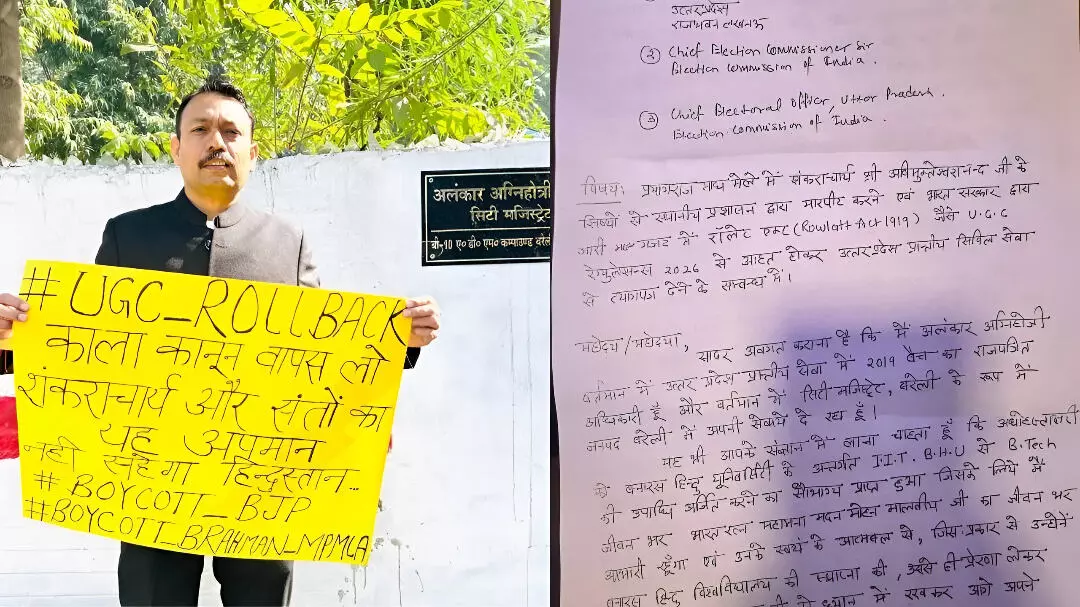 अलंकार अग्निहोत्री
सिटी मजिस्ट्रेट
बी-10 ए० डी० एम० कम्पाउण्ड बरेली
#UGC_ROLLBACK
काला कानून वापस लो
शंकराचार्य और संतों का
यह अपमान
नहीं सहेगा हिन्दुस्तान...
#BOYCOTT_BJP
#BOYCOTT_BRAHMAN_MPMLA
उत्तर प्रदेश
राजभवन लखनऊ
② Chief Election Commissioner Sir
Election Commission of India.
③ Chief Electoral Officer, Uttar Pradesh.
Election Commission of India.
विषय: प्रयागराज माघ मेले में शंकराचार्य श्री अविमुक्तेश्वरानन्द जी के
शिष्यों से स्थानीय प्रशासन द्वारा मारपीट करने एवं भारत सरकार द्वारा
जारी गजट में रॉलेट एक्ट (Rowlatt Act 1919) जैसे U.G.C
रेगुलेसन्स 2026 से आहत होकर उत्तर प्रदेश प्रान्तीय सिविल सेवा
से त्यागपत्र देने के सम्बन्ध में।
महोदय/महोदया,
सादर अवगत कराना है कि मैं अलंकार अग्निहोत्री
वर्तमान में उत्तर प्रदेश प्रान्तीय सेवा में 2019 बैच का राजपत्रित
अधिकारी हूँ और वर्तमान में सिटी मजिस्ट्रेट, बरेली के रूप में
जनपद बरेली में अपनी सेवायें दे रहा हूँ।
यह भी आपके संज्ञान में लाना चाहता हूँ कि अधोहस्ताक्षरी
को बनारस हिन्दू यूनिवर्सिटी के अन्तर्गत I.I.T. B.H.U से B.Tech
की उपाधि अर्जित करने का सौभाग्य प्राप्त हुआ जिसके लिये मैं
जीवन भर भारतरत्न महामना मदन मोहन मालवीय जी का जीवन भर
आभारी रहूँगा एवं उनके स्वयं के आत्मबल से, जिस प्रकार से उन्होंने
बनारस हिन्दू विश्वविद्यालय की स्थापना की, उससे ही प्रेरणा लेकर
ध्यान में रखकर अपने